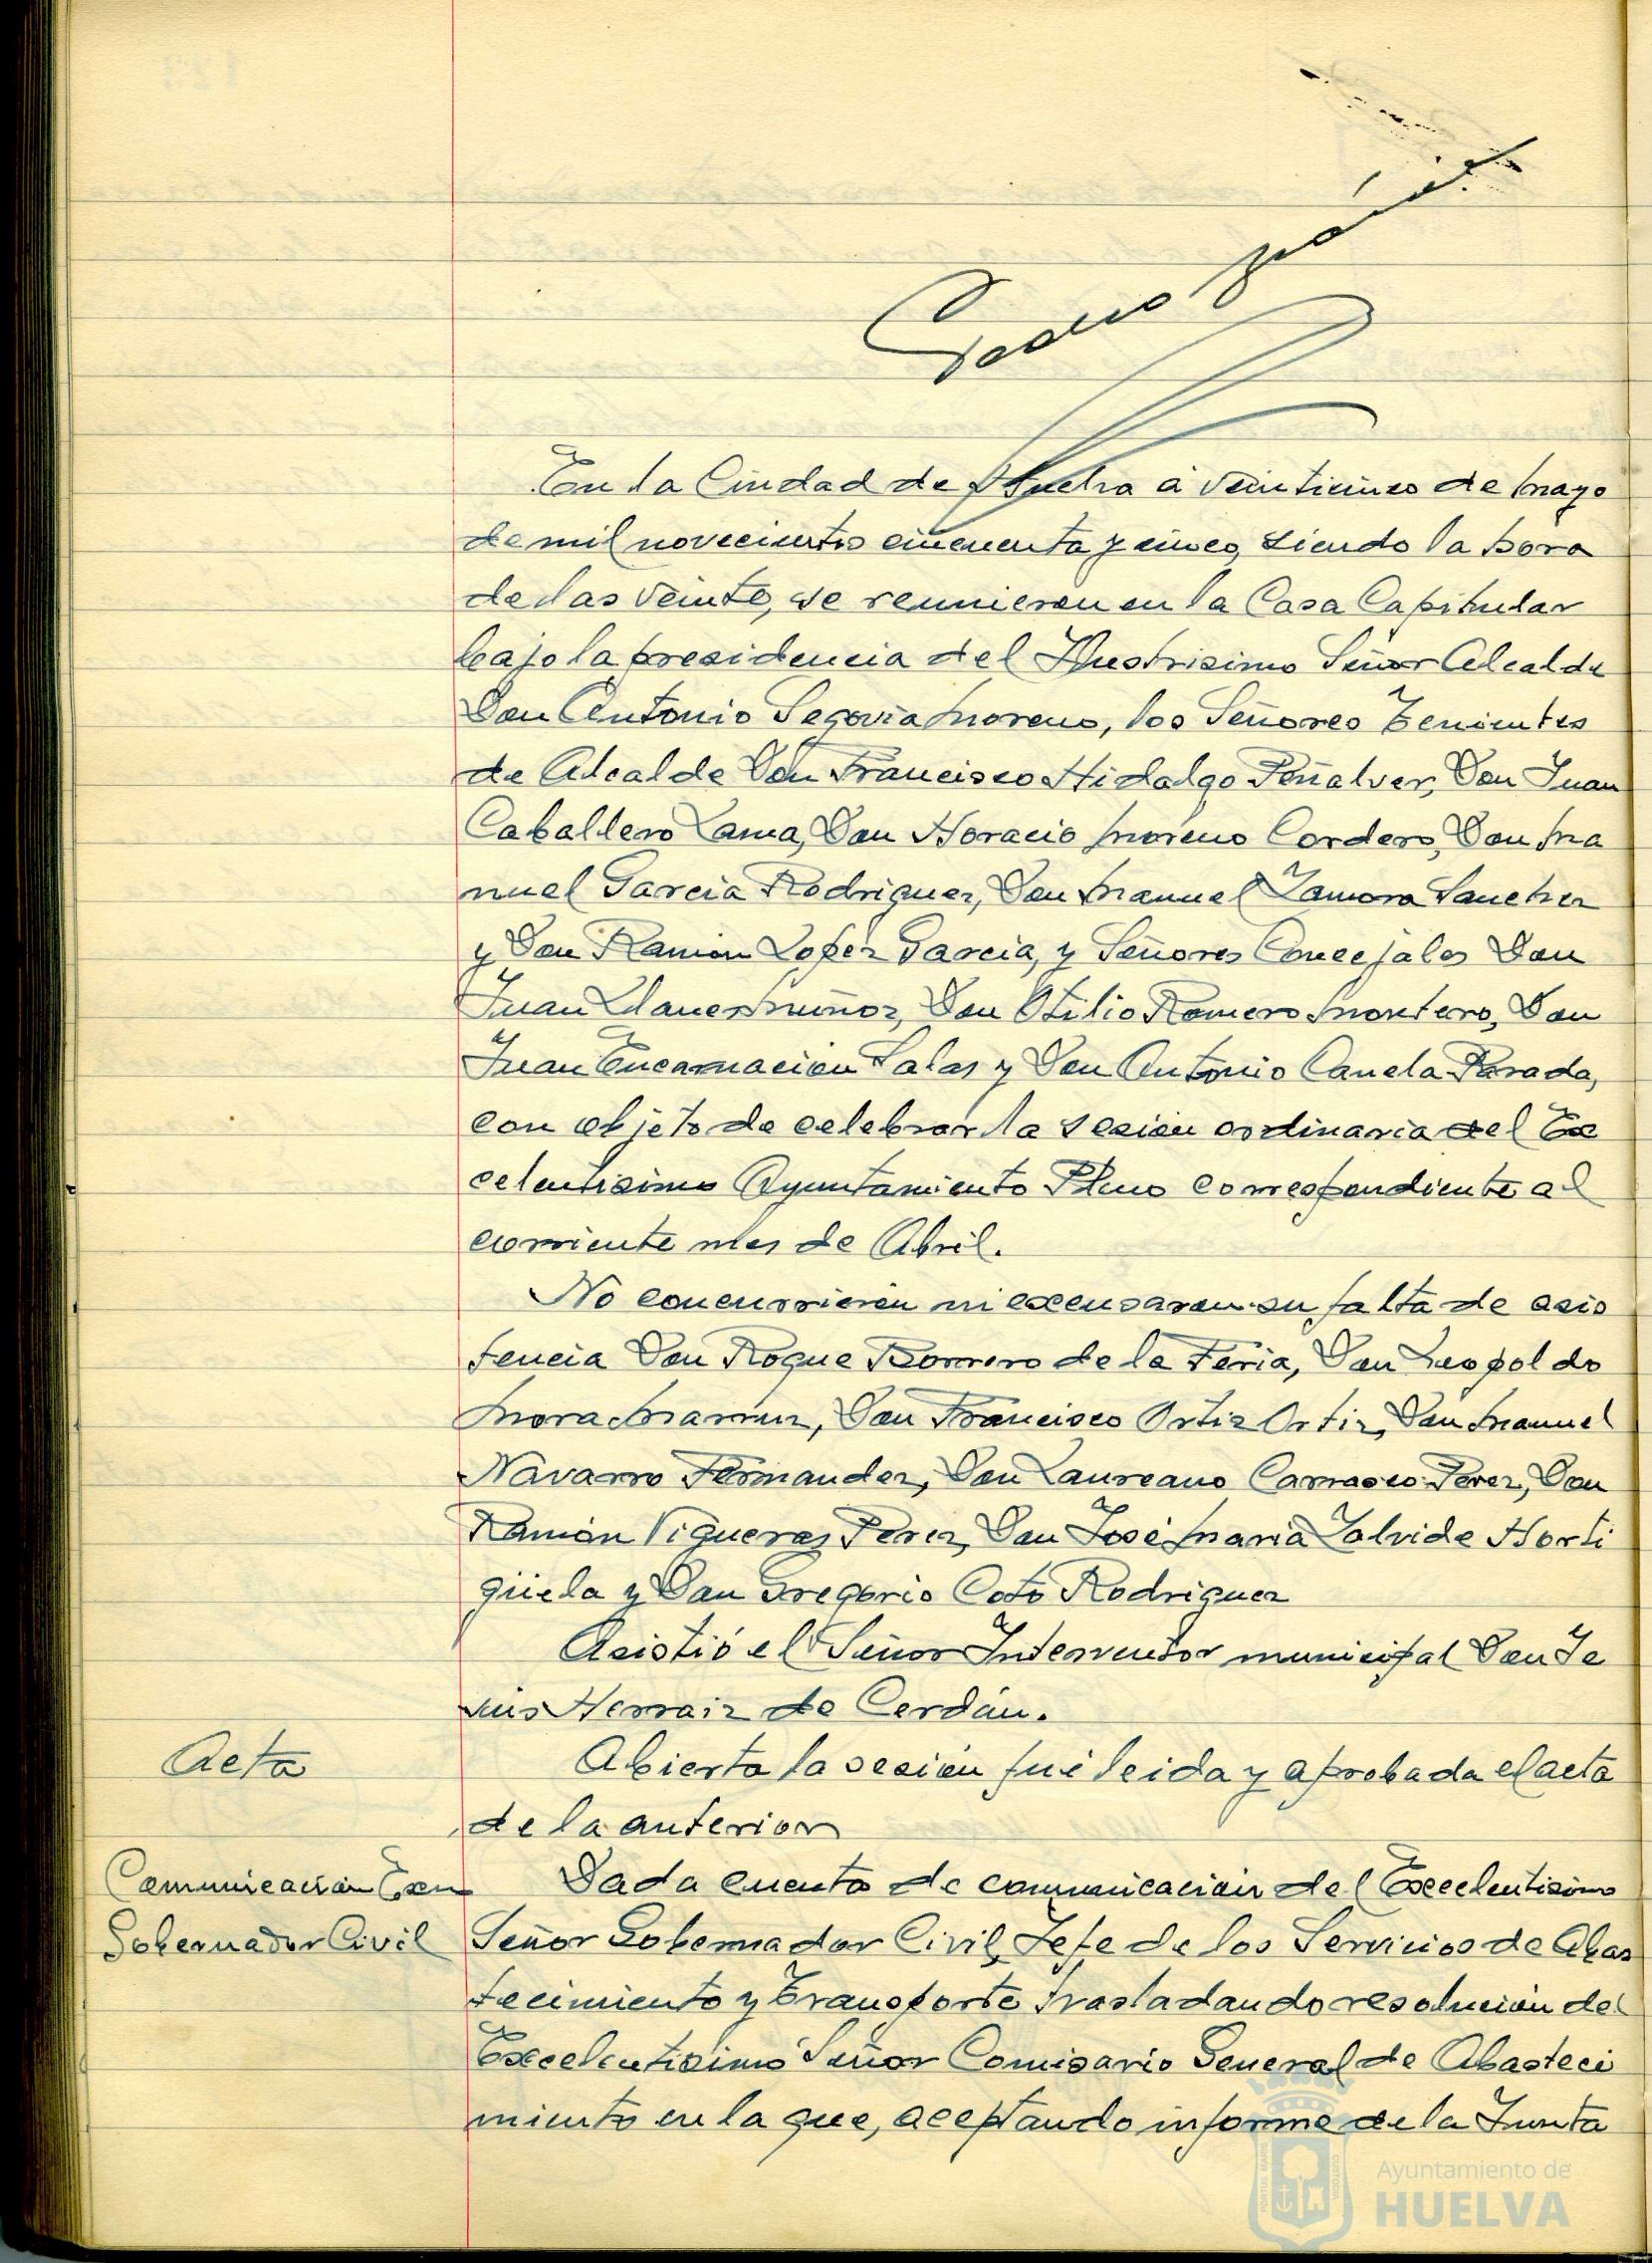 En la Ciudad de Huelva a veinticinco de mayo
de mil novecientos cincuenta y cinco, siendo la hora
de las veinte, se reunieron en la Casa Capitular
bajo la presidencia del Ilustrisimo Señor Alcalde
Don Antonio Segovia Moreno, los Señores Tenientes
de Alcalde Don Francisco Hidalgo Peñalver, Don Juan
Caballero Lama, Don Horacio Moreno Cordero, Don Ma
nuel Garcia Rodriguez, Don Manuel Zamora Sanchez
y Don Ramon Lopez Garcia, y Señores Concejales Don
Juan Llanes Muñoz, Don Otilio Romero Montero, Don
Juan Encarnacion Salas y Don Antonio Canela Parada,
con objeto de celebrar la sesión ordinaria del Ex
celentisimo Ayuntamiento Pleno correspondiente al
corriente mes de Abril.
No concurrieron ni excusaron su falta de asis
tencia Don Roque Borrero de la Feria, Don Leopoldo
Mora, Don Francisco Ortiz Ortiz, Don Manuel
Navarro Fernandez, Don Laureano Carrasco Perez, Don
Ramón Vigueras Perez, Don José Maria Zalvide Horti
güela y Don Gregorio Coto Rodriguez
Asistió el Señor Interventor municipal Don Je
sus Herraiz de Cerdán.
Acta
Abierta la sesión fué leida y aprobada el acta
de la anterior
Comunicación Exm
Gobernador Civil
Dada cuenta de comunicación del Excelentisimo
Señor Gobernador Civil, Jefe de los Servicios de Abas
tecimiento y Transporte trasladando resolución del
Excelentisimo Señor Comisario General de Abasteci
miento en la que, aceptando informe de la Junta
Ayuntamiento de
HUELVA